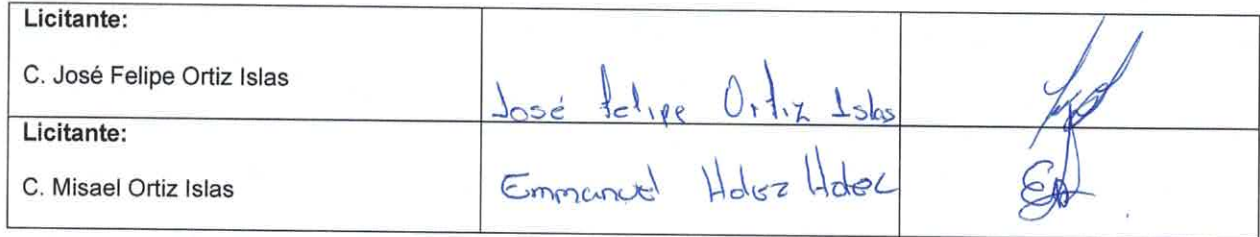 Licitante:
C. José Felipe Ortiz Islas
José Felipe Ortiz Islas
Licitante:
C. Misael Ortiz Islas
Emmanuel Hdez Hdez